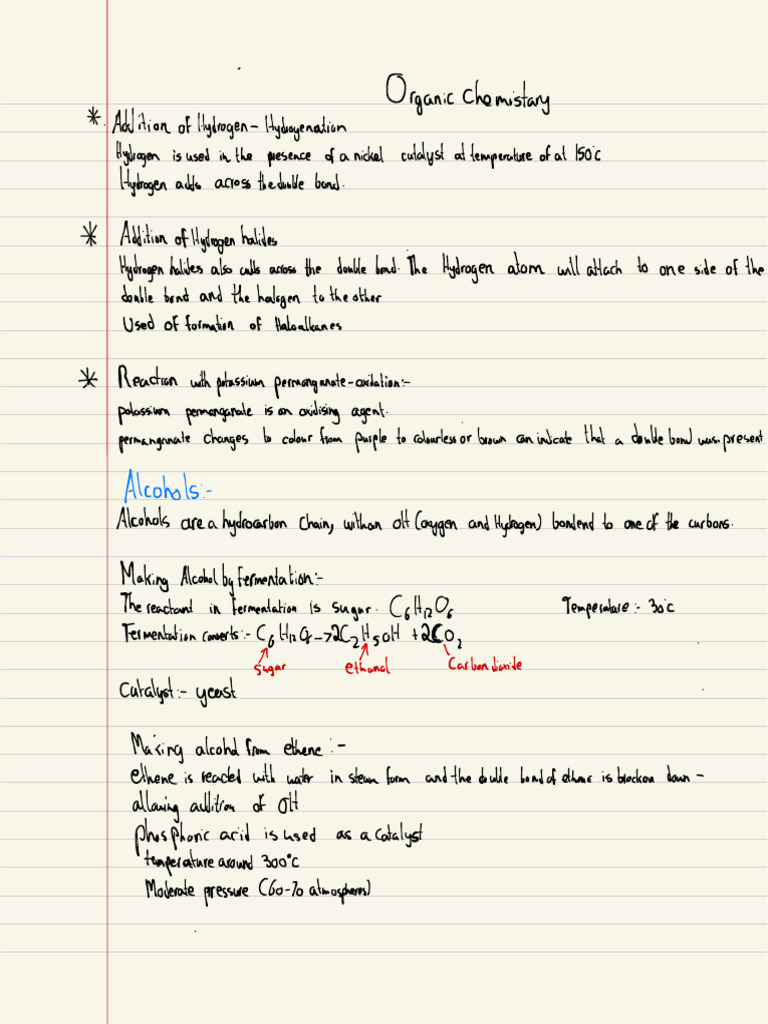 Organic Chemistary
* Addition of Hydrogen - Hydrogenation
Hydrogen is used in the presence of a nickel catalyst at temperature of at 150°c
Hydrogen adds across the double bond.
* Addition of Hydrogen halides
Hydrogen halides also adds across the double bond. The Hydrogen atom will attach to one side of the
double bond and the halogen to the other
Used of formation of Haloalkanes
* Reaction with potassium permanganate - oxidation:-
potassium permanganate is an oxidising agent.
permanganate changes to colour from purple to colourless or brown can indicate that a double bond was present
Alcohols:-
Alcohols are a hydrocarbon chain, with an OH (oxygen and Hydrogen) bondend to one of the carbons.
Making Alcohol by Fermentation:-
The reactant in fermentation is sugar. C6H12O6 Temperature:- 30°c
Fermentation converts:- C6H12O6 -> 2C2H5OH + 2CO2
sugar ethanol Carbon dioxide
Catalyst:- yeast
Making alcohol from ethene:-
ethene is reacted with water in steam form and the double bond of ethene is brocken down -
allowing addition of OH
phosphoric acid is used as a catalyst
temperature around 300°c
Moderate pressure (60-70 atmospheres)